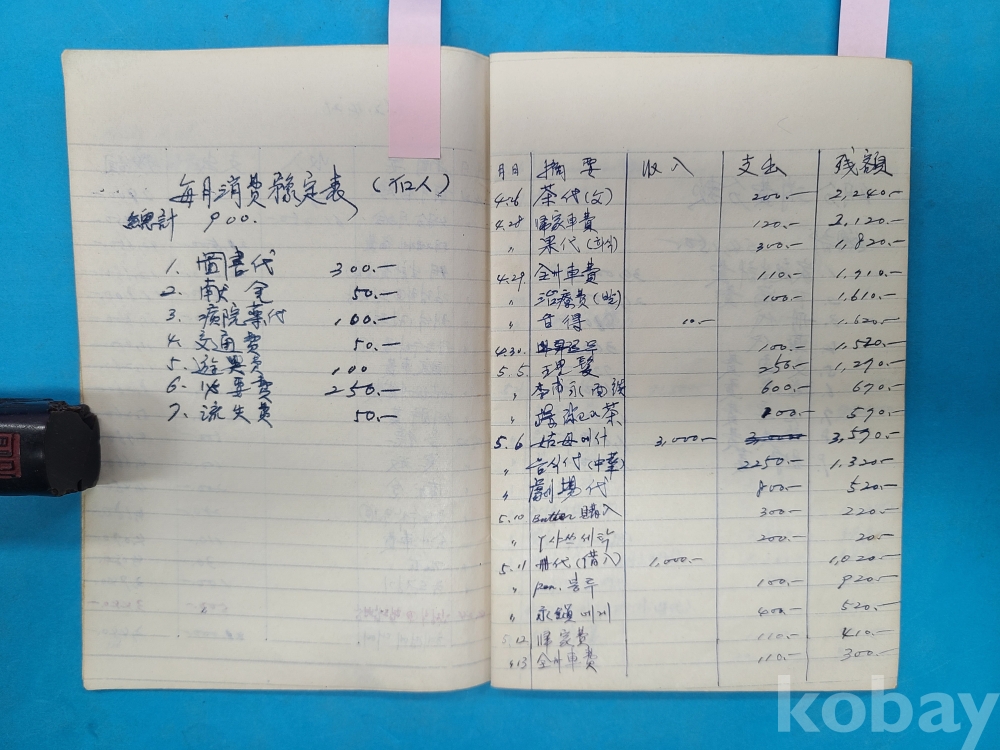 每月消費豫定表
總計 900.
1. 圖書代 300.—
2. 献金 50.—
3. 病院藥代 100.—
4. 交通費 50.—
5. 遊興費 100
6. 必要費 250.—
7. 流失費 50.—
月日 摘要 収入 支出 残額
4.26 茶代(文) 200.— 2,240.—
4.28 帰家車費 120.— 2,120.—
〃 果代 300.— 1,820.—
4.29 全州車費 110.— 1,910.—
〃 治療費 100.— 1,610.—
〃 甘得 10.— 1.620.—
4.30. 100.— 1.520.—
5.5. 理髮 250.— 1,270.—
〃 600.— 670.—
〃 茶 100.— 570.—
5.6 姑母에서 3,000.— 3,570.—
〃 음식代(中華) 2250.— 1,320.—
〃 劇場代 800.— 520.—
5.10 Butter 購入 300.— 220.—
〃 Y샤쓰세탁 200.— 20.—
5.11 冊代(借入) 1,000.— 1,020.—
〃 pen. 100.— 920.—
〃 永鎭에게 400.— 520.—
5.12 帰家費 110.— 410.—
〃13 全州車費 110.— 300.—
kobay